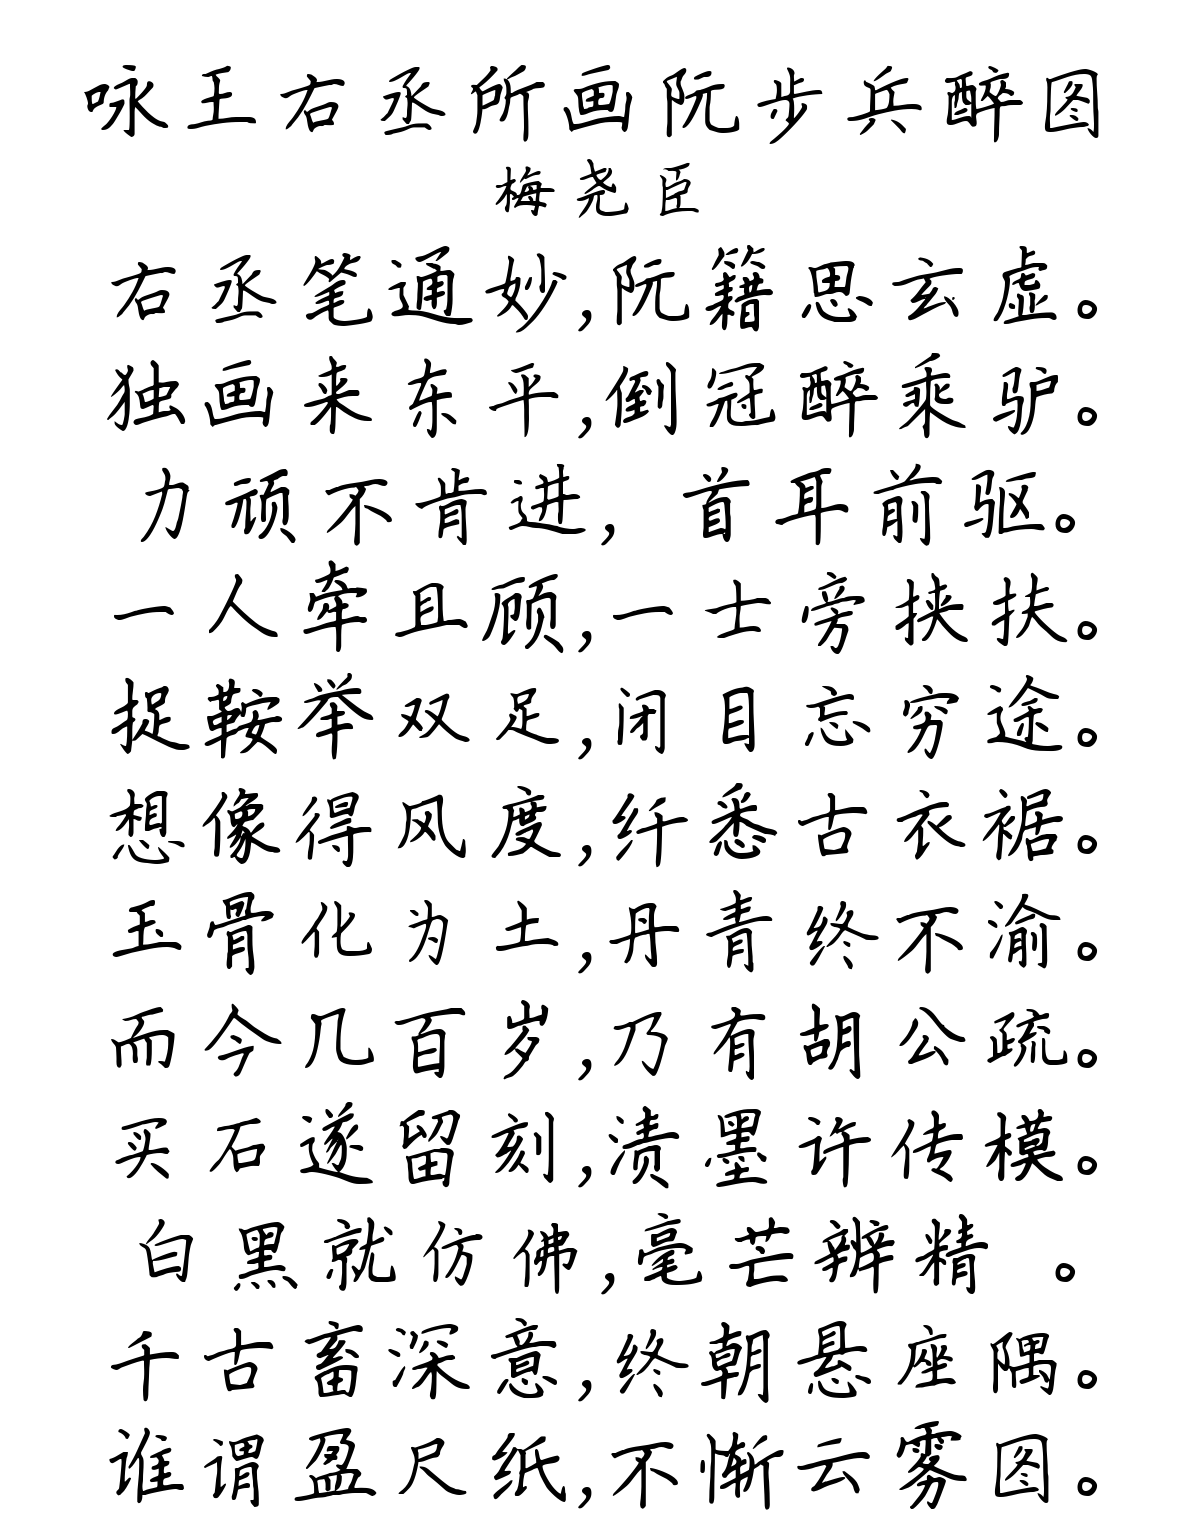 咏王右丞所画阮步兵醉图
梅尧臣
右丞笔通妙,阮籍思玄虚。
独画来东平,倒冠醉乘驴。
力顽不肯进, 首耳前驱。
一人牵且顾,一士旁挟扶。
捉鞍举双足,闭目忘穷途。
想像得风度,纤悉古衣裾。
玉骨化为土,丹青终不渝。
而今几百岁,乃有胡公疏。
买石遂留刻,渍墨许传模。
白黑就仿佛,毫芒辨精 。
千古畜深意,终朝悬座隅。
谁谓盈尺纸,不惭云雾图。